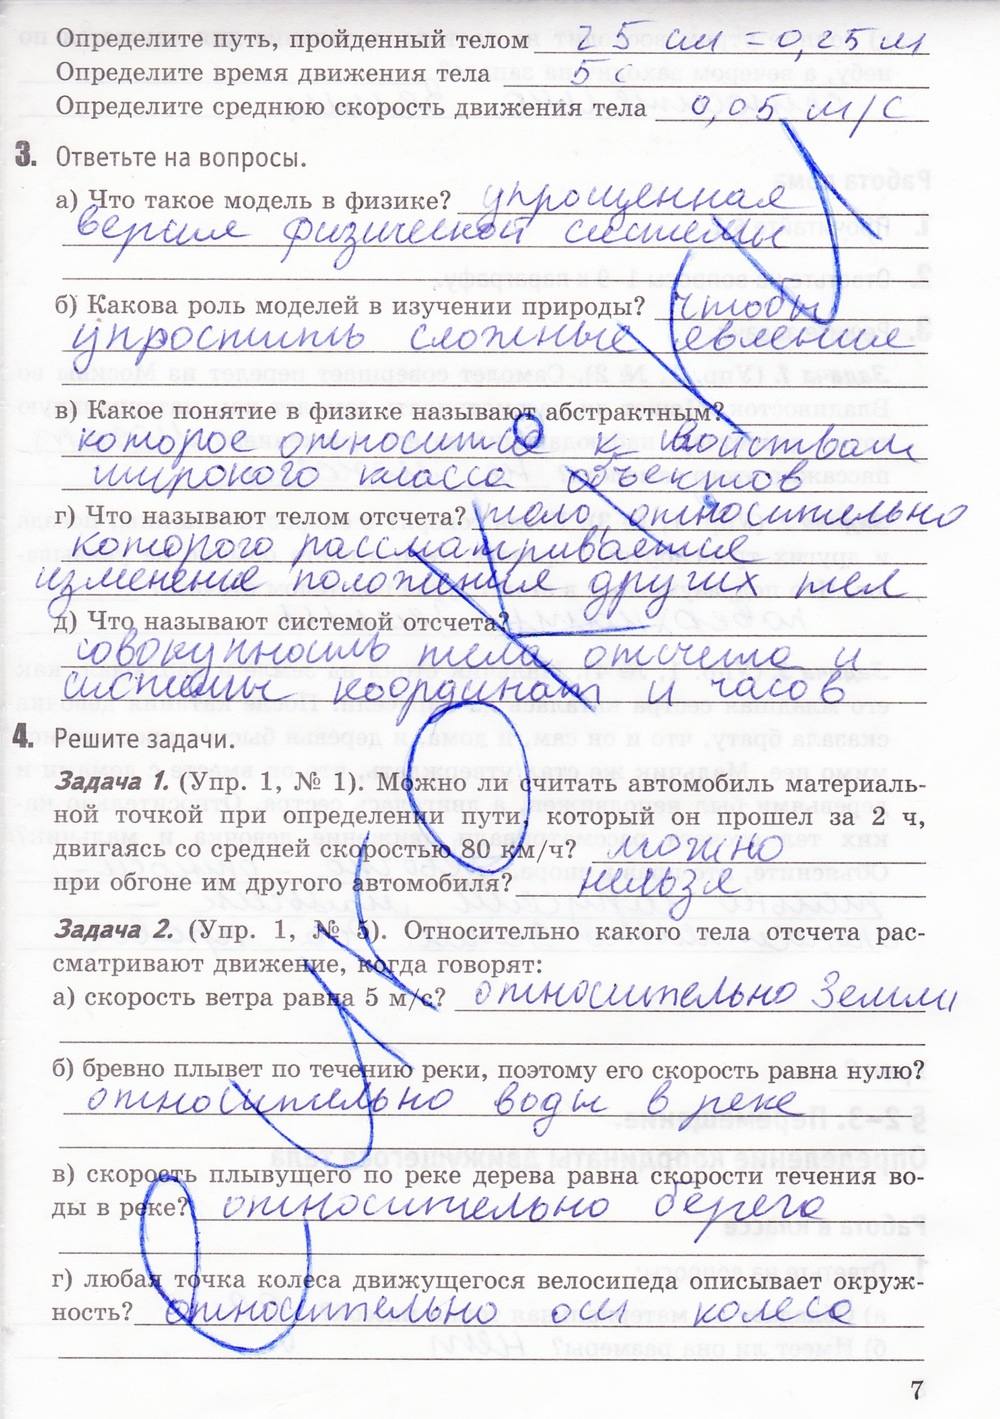 Определите путь, пройденный телом 25 см = 0,25 м
Определите время движения тела 5 с
Определите среднюю скорость движения тела 0,05 м/с
3. Ответьте на вопросы.
а) Что такое модель в физике? упрощенная
версия физической системы
б) Какова роль моделей в изучении природы? чтобы
упростить сложные явления
в) Какое понятие в физике называют абстрактным?
которое относится к свойствам
широкого класса объектов
г) Что называют телом отсчета? тело, относительно
которого рассматривается
изменение положения других тел
д) Что называют системой отсчета?
совокупность тела отсчета и
системы координат и часов
4. Решите задачи.
Задача 1. (Упр. 1, № 1). Можно ли считать автомобиль материаль-
ной точкой при определении пути, который он прошел за 2 ч,
двигаясь со средней скоростью 80 км/ч? можно
при обгоне им другого автомобиля? нельзя
Задача 2. (Упр. 1, № 5). Относительно какого тела отсчета рас-
сматривают движение, когда говорят:
а) скорость ветра равна 5 м/с? относительно Земли
б) бревно плывет по течению реки, поэтому его скорость равна нулю?
относительно воды в реке
в) скорость плывущего по реке дерева равна скорости течения во-
ды в реке? относительно берега
г) любая точка колеса движущегося велосипеда описывает окруж-
ность? относительно оси колеса
7